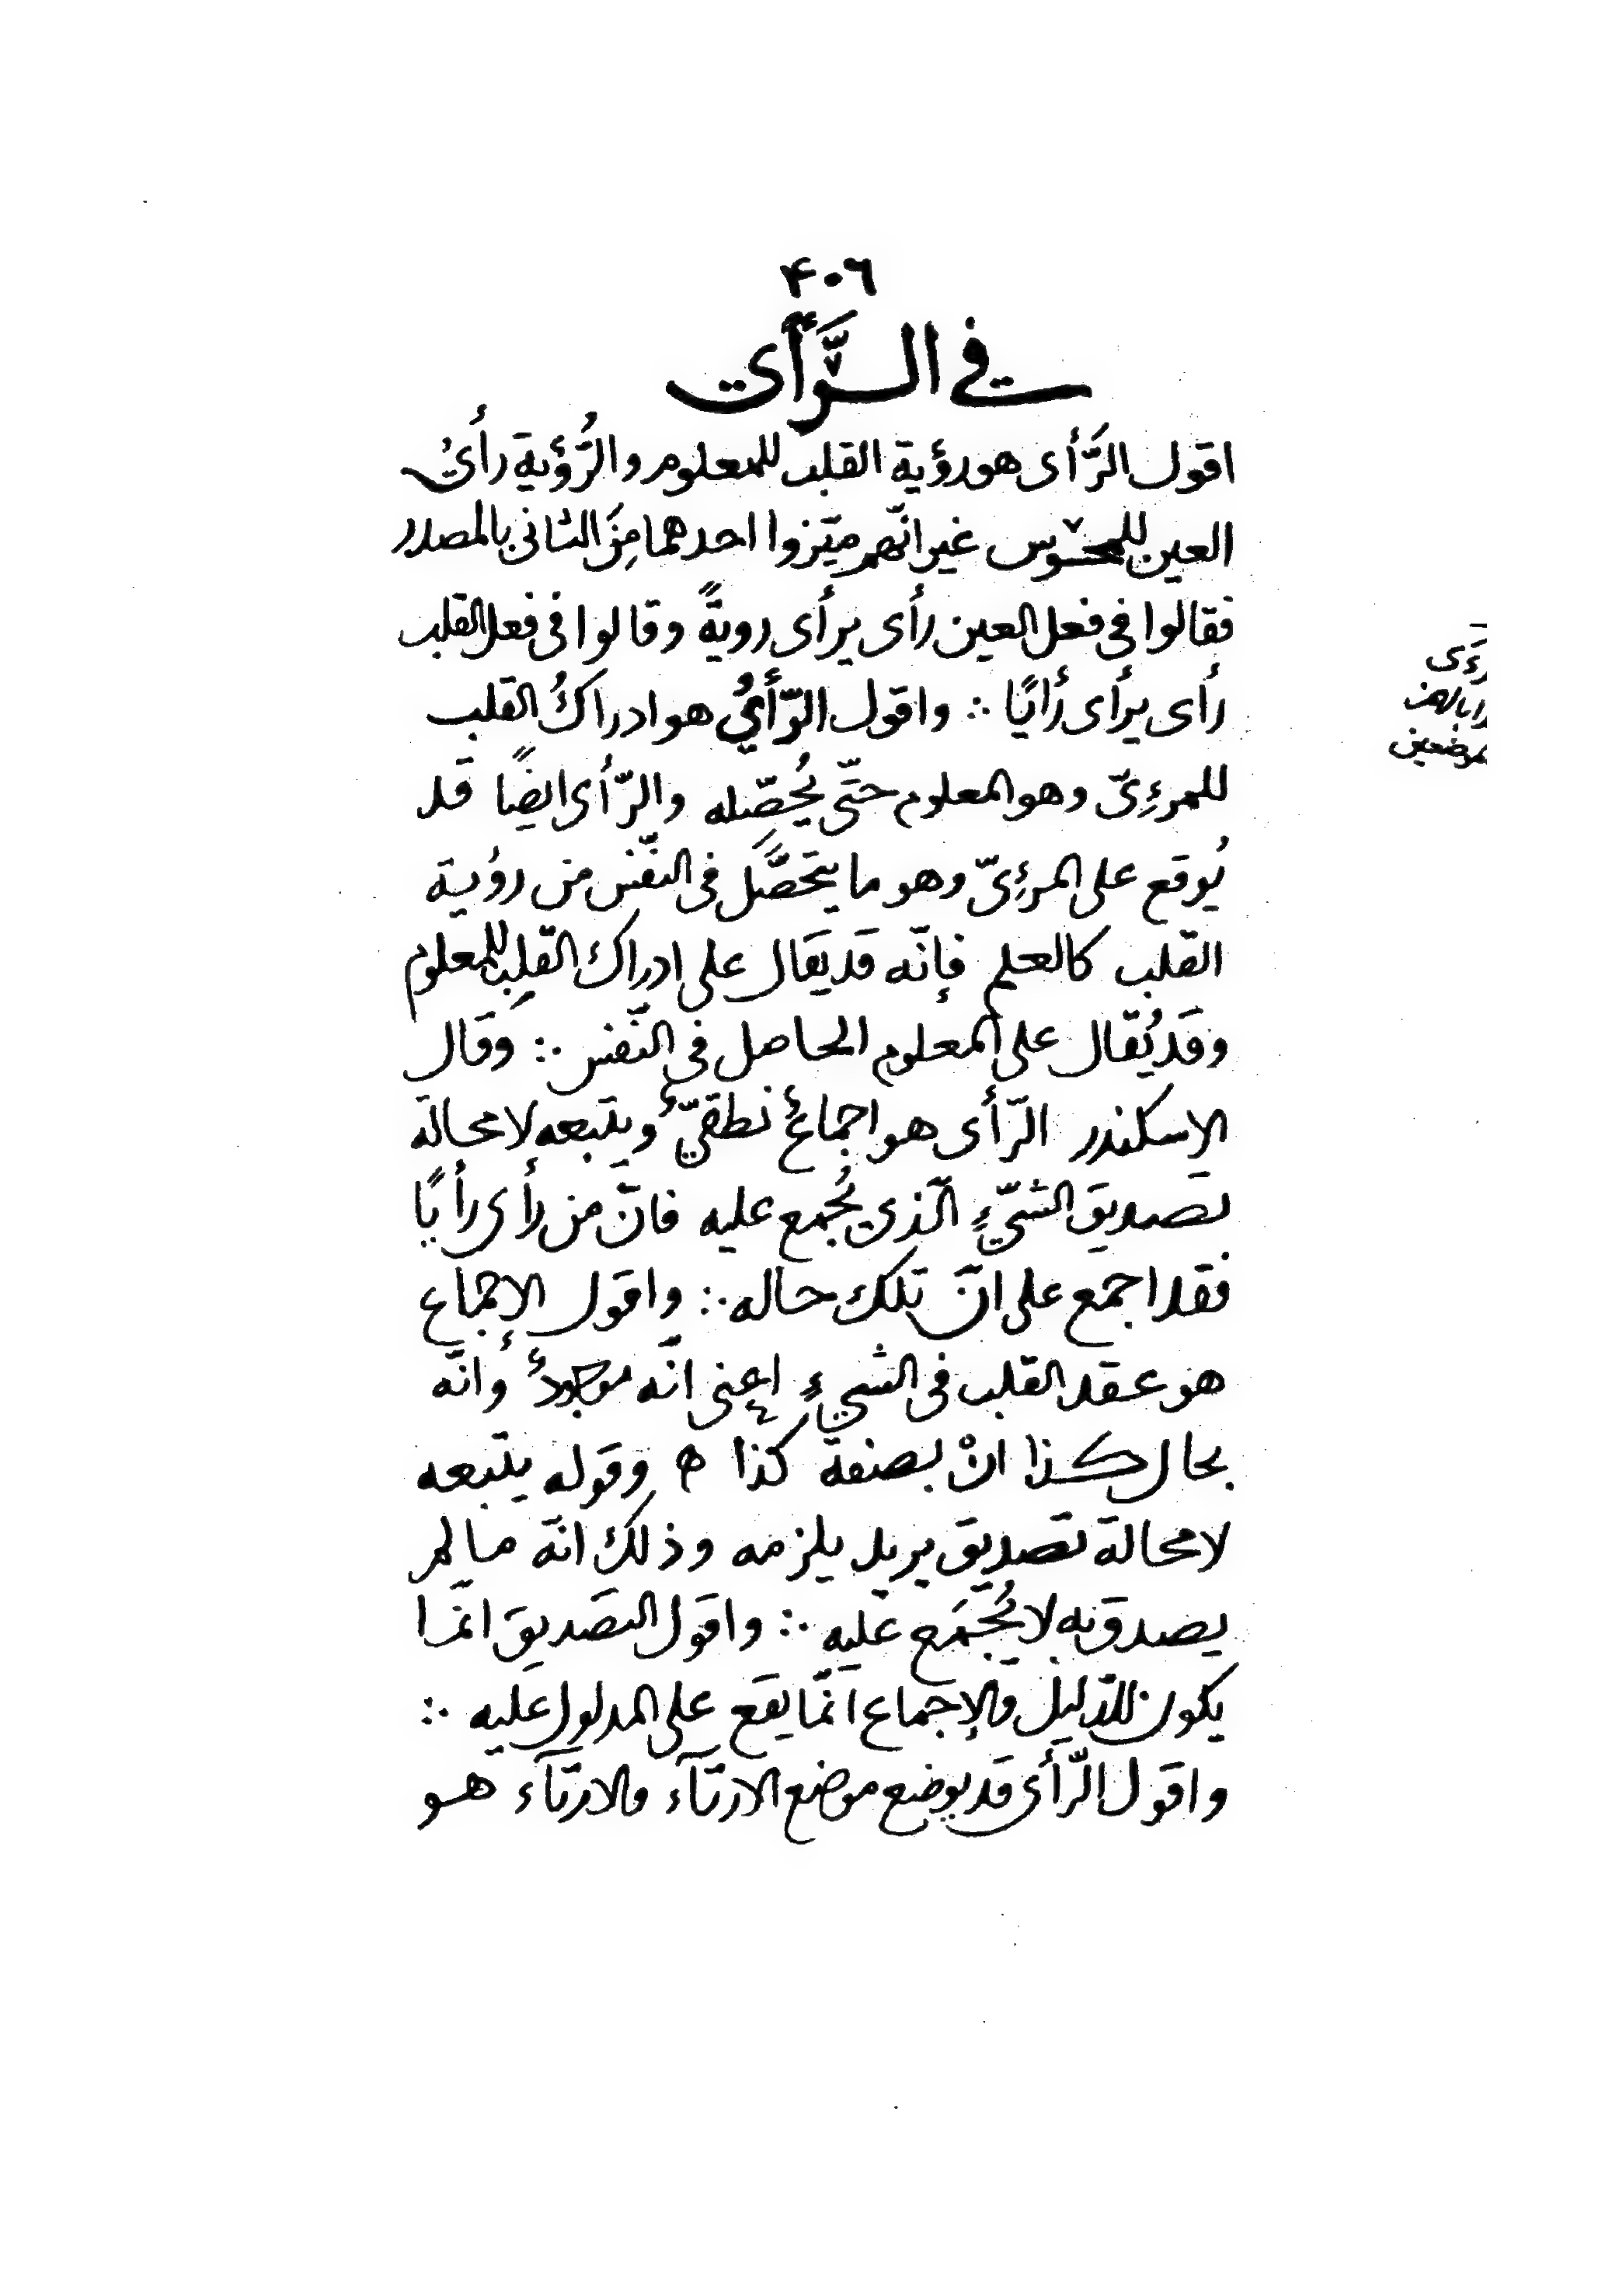 ۴۰٦
في الرَّأي
اقول الرَّأى هو رؤية القلب للمعلوم والرُّؤية رأىُ
العين للمحسوس غير انّهم ميّزوا احدهما مِنَ الثانى بالمصدر
فقالوا فى فعل العين رأى يرأى رويةً وقالوا فى فعل القلب
رأى يرأى رأيًا ∴ واقول الرّأىُ هو ادراكُ القلب
للمرءِىّ وهو المعلوم حتّى يُحصّله والرّأى ايضًا قد
يُوقع على المرءِىّ وهو ما يتحَصَّل فى النّفس من رؤية
القلب كالعلم فإنّه قد يقال على ادراك القلب للمعلوم
وقد يُقال على المعلوم الحاصل فى النّفس ∴ وقال
الاسكندر الرّأى هو اجماعٌ نطقىٌّ ويتبعه لا محالة
تصديق الشّىءِ الّذى يُجمع عليه فانّ من رأى رأيًا
فقد اجمع على انّ تلك حاله ∴ واقول الاجماع
هو عقد القلب فى الشىءِ اعنى انّه موجودٌ وانّه
بحال كذا انْ بصفة كذا ه وقوله يتبعه
لا محالة تصديق يريد يلزمه وذلك انّه ما لم
يصدق به لا يُجْمَع عليه ∴ واقول التصديق انّما
يكون للدّليل والإجماع انّما يقع على المدلول عليه ∴
واقول الرّأى قد يوضع موضع الارتآء والارتآء هو
رءَى
موضعين